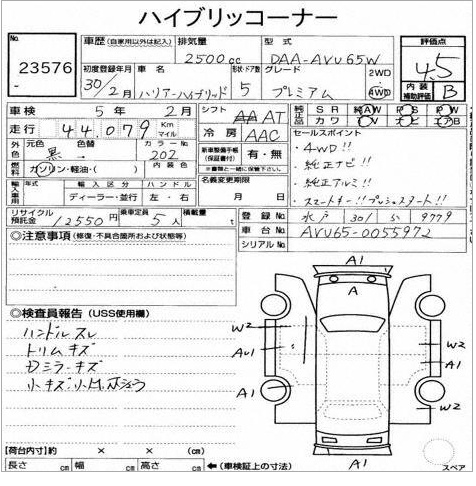 ハイブリッコーナー
No.
23576
車歴 (自家用以外は記入)
排気量
型式
評価点
2500cc
DAA-AVU65W
4.5
初度登録年月
車名
形状・ドア数
グレード
2WD・4WD
30/2月
ハリアーハイブリッド
5
プレミアム
内装補助評価
B
車検 5年 2月
シフト
AAAT
純正品
SR AW PS PW
カワ ナビ エアB
走行 44,079 Km マイル
冷房
AAC
セールスポイント
外色
元色
色替
カラーNo.
黒
202
新車整備手帳(保証書付) 有・無
※書類と一緒に保管して下さい
・4WD!!
・純正ナビ!!
・純正アルミ!!
・スマートキー!!プッシュスタート!!
燃料
ガソリン・軽油・( )
名義変更期限
月 日
輸入車用
年式
輸入区分
ハンドル
ディーラー・並行
左・右
リサイクル預託金 12550円
乗車定員 5人
積載量 t
登録No. 水戸 301 9779
車台No. AVU65-0055972
シリアルNo.
◎注意事項 (修復・不具合箇所および状態等)
◎検査員報告 (USS使用欄)
ハンドルスレ
トリムキズ
小キズ小凹
A1
A
W2
W2
AU1
A1
A1
W2
A1
スペア
【荷台内寸】約 × × (cm)
長さ cm 幅 cm 高さ cm ←(車検証上の寸法)